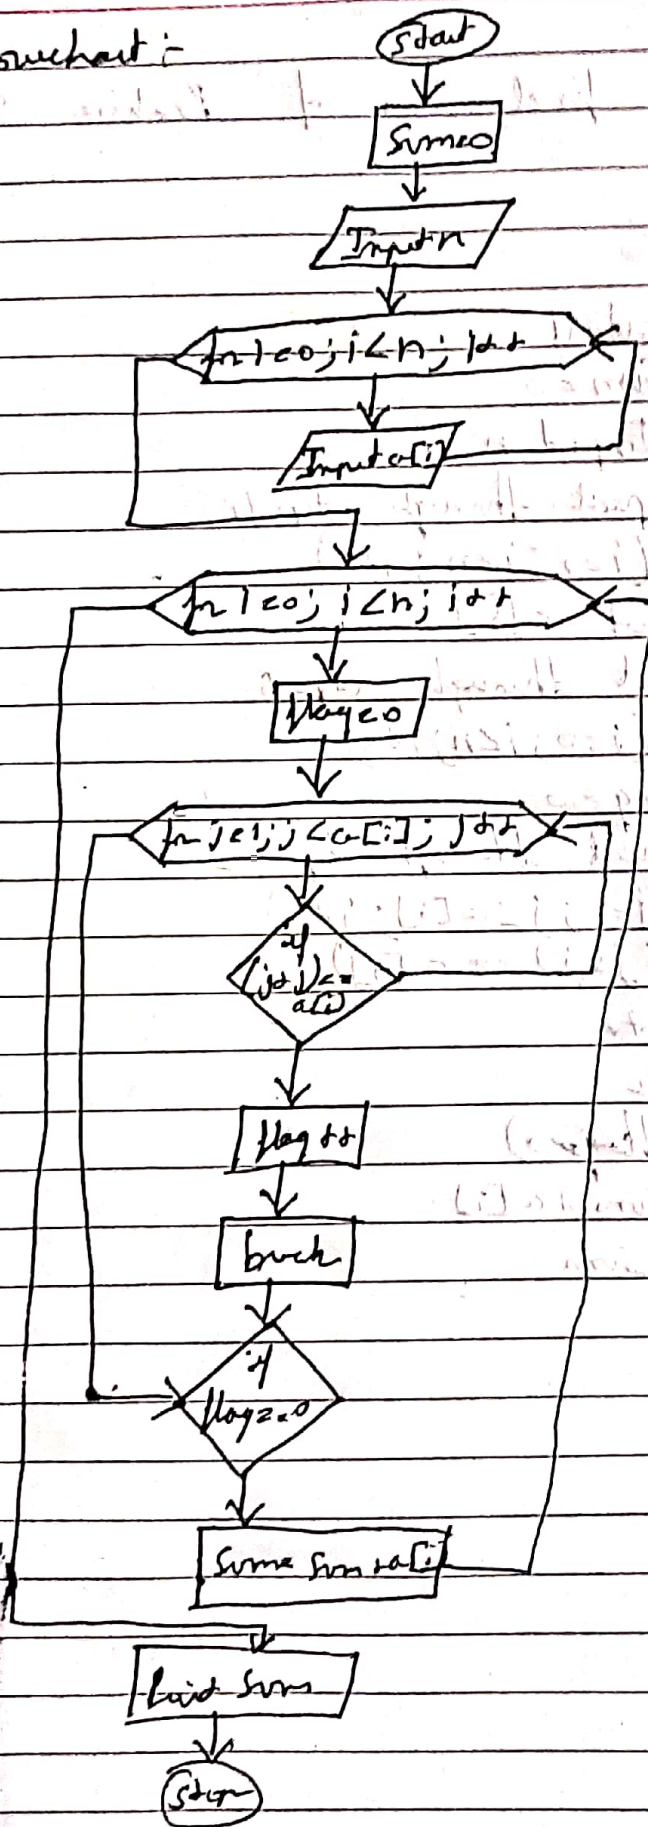 owchart :-
start
Sum=0
Input n
for i=0; i<n; i++
Input a[i]
for i=0; i<n; i++
flag=0
for j=1; j<a[i]; j++
if
(j*j)==
a[i]
flag++
break
if
flag==0
Sum=Sum+a[i]
Print Sum
Stop